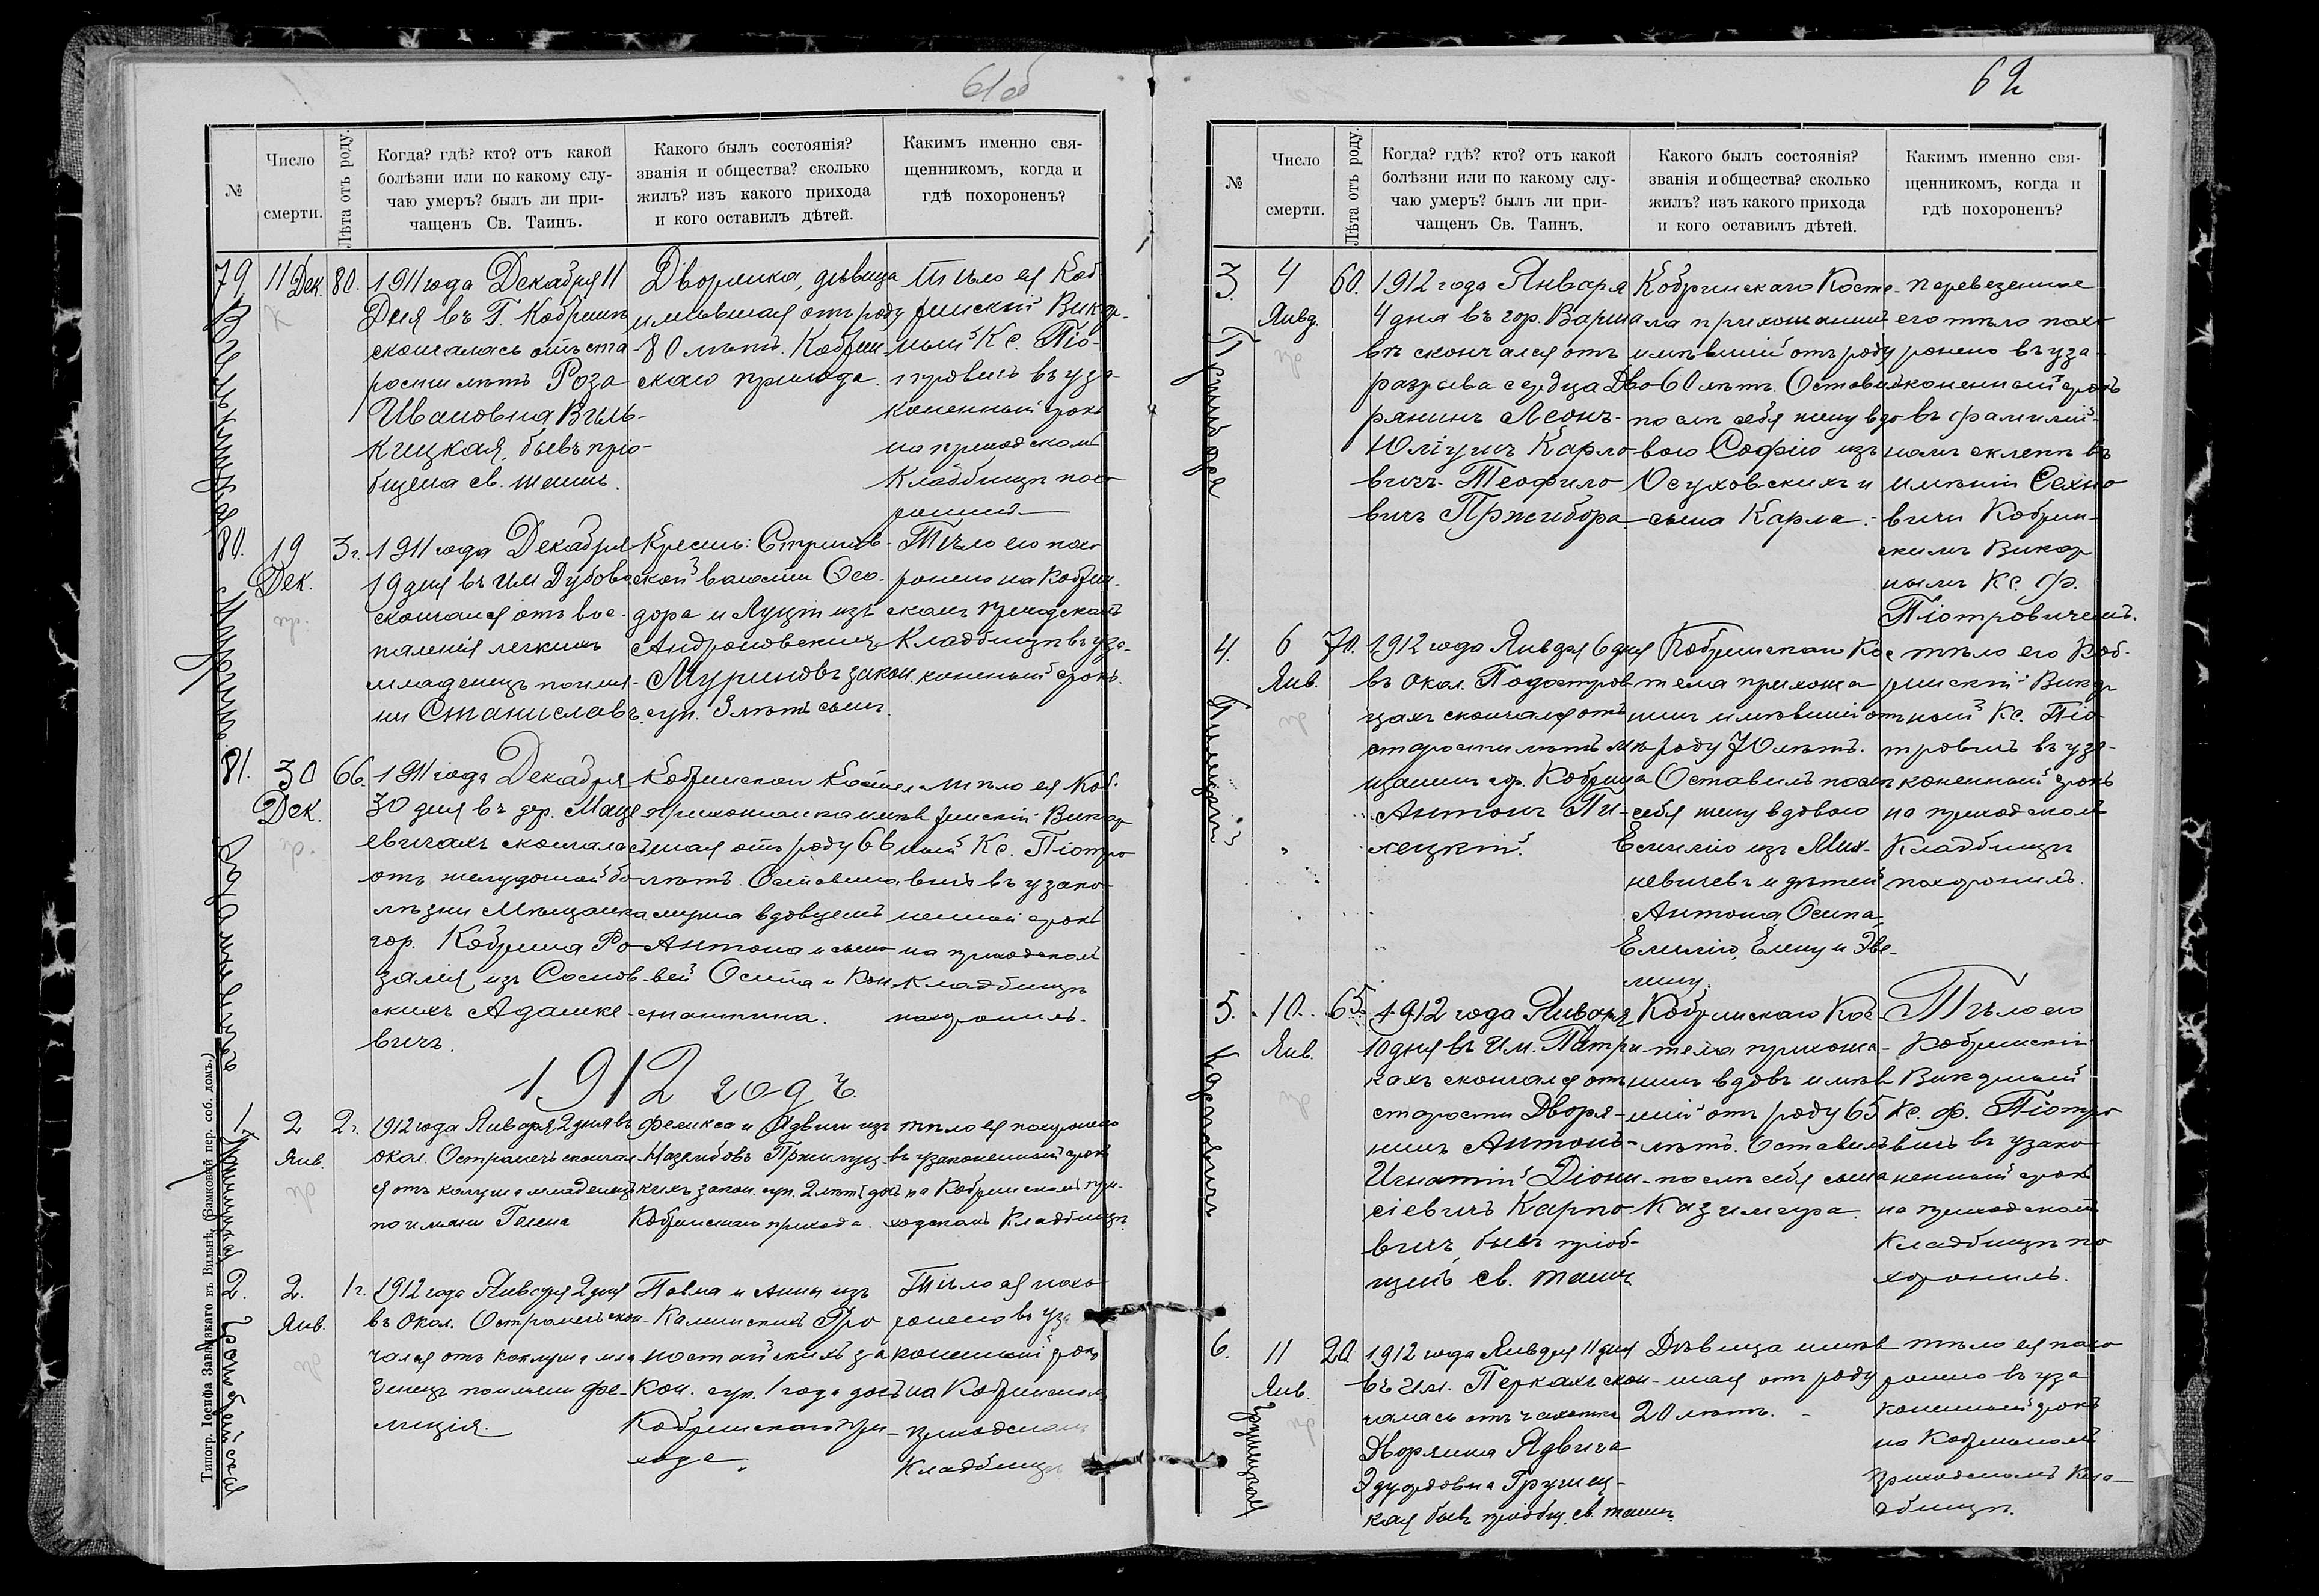 61об
№
Число
смерти.
Лѣта отъ роду.
Когда? гдѣ? кто? отъ какой
болѣзни или по какому слу-
чаю умеръ? былъ ли при-
чащенъ Св. Таинъ.
Какого былъ состоянія?
званія и общества? сколько
жилъ? изъ какого прихода
и кого оставилъ дѣтей.
Какимъ именно свя-
щенникомъ, когда и
гдѣ похороненъ?
79
Вилькицкая
11 Дек.
80.
1911 года Декабря 11
Дня въ Г. Кобринѣ
скончалась отъ ста-
рости лѣтъ Роза
Ивановна Виль-
кицкая, бывъ прiо-
бщена св. таинъ.
Дворянка, дѣвица
имѣвшая отъ роду
80 лѣтъ. Кобрин-
скаго прихода.
Тѣло ея Коб-
ринскій Викар-
ный Кс. Піо-
тровичъ въ уза-
коненный срокъ
на приходскомъ
Кладбищѣ похо-
ронилъ
80.
Муринъ
19
Дек.
3 г.
1911 года Декабря
19 дня въ им Дубово
скончался отъ вос-
паленія легкихъ
младенецъ по име-
ни Станиславъ
Крестьян: Стригов-
ской волости Ѳео-
дора и Луціи изъ
Андроновскихъ
Муриновъ закон.
суп. 3 лѣтъ сынъ
Тѣло его похо
ронено на Кобрин-
скомъ приходскомъ
Кладбищѣ въ уза-
коненный срокъ.
81.
Адашкевичъ
30
Дек.
66.
1911 года Декабря
30 дня въ дер. Маце
евичахъ скончалась
отъ желудочной бо-
лѣзни Мѣщанка
гор. Кобрина Ро-
залія изъ Соснов-
скихъ Адашке-
вичъ.
Кобринскаго Костела
прихожанка имѣв
шая отъ роду 66
лѣтъ. Оставила
мужа вдовцемъ
Антона и сыно-
вей Осипа и Кон-
стантина.
тѣло ея Коб-
ринскій Викар
ный Кс. Піотро
вичъ въ узако-
ненный срокъ
на приходскомъ
кладбищѣ
похоронилъ.
1912 годъ.
1.
2
Янв.
2 г.
1912 года Января 2 дня въ
окол. Остромечъ сконча-
ся отъ коклуша младенецъ
по имени Гелена
Феликса и Ядвиги изъ
Назембовъ Пржилуц-
кихъ закон. суп. 2 лѣтъ дочь
Кобринскаго прихода.
тѣло ея похоронено
въ узаконенный срокъ
на Кобринскомъ при-
ходскомъ Кладбищѣ.
2.
2.
Янв.
1 г.
1912 года Января 2 дня
въ Окол. Остромечъ скон-
чался отъ коклуша мла
денецъ по имени Фе-
лиція.
Павла и Анны изъ
Калинскихъ Гро
ностайскихъ за
кон. суп. 1 года дочь
Кобринскаго при-
хода.
Тѣло ея похо
ронено въ уза
коненный срокъ
на Кобринскомъ
приходскомъ
Кладбищѣ
Типогр. Іосифа Завадзкаго въ Вильнѣ, (Замковый пер. соб. домъ.)
62
№
Число
смерти.
Лѣта отъ роду.
Когда? гдѣ? кто? отъ какой
болѣзни или по какому слу-
чаю умеръ? былъ ли при-
чащенъ Св. Таинъ.
Какого былъ состоянія?
званія и общества? сколько
жилъ? изъ какого прихода
и кого оставилъ дѣтей.
Какимъ именно свя-
щенникомъ, когда и
гдѣ похороненъ?
3.
Пржибора
4
Янва.
60.
1912 года Января
4 дня въ гор. Варша
вѣ скончался отъ
разрыва сердца Дво
рянинъ Леонъ-
Юліушъ Карло-
вичъ-Теофило
вичъ Пржибора
Кобринскаго Косте-
ла прихожанинъ
имѣвшій отъ роду
60 лѣтъ. Оставилъ
послѣ себя жену вдо
вою Софію изъ
Осуховскихъ и
сына Карла.
перевезенное
его тѣло похо
ронено въ уза-
коненный срокъ
въ фамилій-
номъ склепѣ въ
имѣніи Сехно
вичи Кобрин-
скимъ Викар
нымъ Кс. Ф.
Піотровичемъ.
4.
Пилецкій
6
Янв.
70.
1912 года Января 6 дня
въ Окол. Подостров
цахъ скончался отъ
старости лѣтъ мѣ-
щанинъ гор. Кобрина
Антонъ Пи-
лецкій.
Кобринскаго Кос
тела прихожа
нинъ имѣвшій от
роду 70 лѣтъ.
Оставилъ послѣ
себя жену вдовою
Емилію изъ Мих-
невичевъ и дѣтей
Антона, Осипа,
Емилію, Елену и Эве-
лину.
тѣло его Коб-
ринскій Викар
ный Кс. Піо
тровичъ въ уза-
коненный срокъ
на приходскомъ
Кладбищѣ
похоронилъ.
5.
Карповичъ
10.
Янв.
65.
1912 года Января
10 дня въ Им. Патри
кахъ скончался отъ
старости Дворя-
нинъ Антонъ-
Игнатій Діони-
сіевичъ Карпо-
вичъ, бывъ пріоб-
щенъ св. таинъ
Кобринскаго Кос-
тела прихожа-
нинъ вдовъ имѣв
шій отъ роду 65
лѣтъ. Оставилъ
послѣ себя сына
Казимира.
Тѣло его
Кобринскій
Викарный
Кс. Ф. Піотро
вичъ въ узако
ненный срокъ
на приходскомъ
Кладбищѣ по
хоронилъ.
6.
11
Янв.
20
1912 года Января 11 дня
въ Им. Перкахъ скон-
чалась отъ чахотки
Дворянка Ядвига
Эдуардовна Грушец-
кая бывъ пріобщ. св. таинъ.
Дѣвица имѣв
шая отъ роду
20 лѣтъ.
тѣло ея похо
ронено въ уза
коненный срокъ
на Кобринскомъ
Приходскомъ Кла-
дбищѣ.